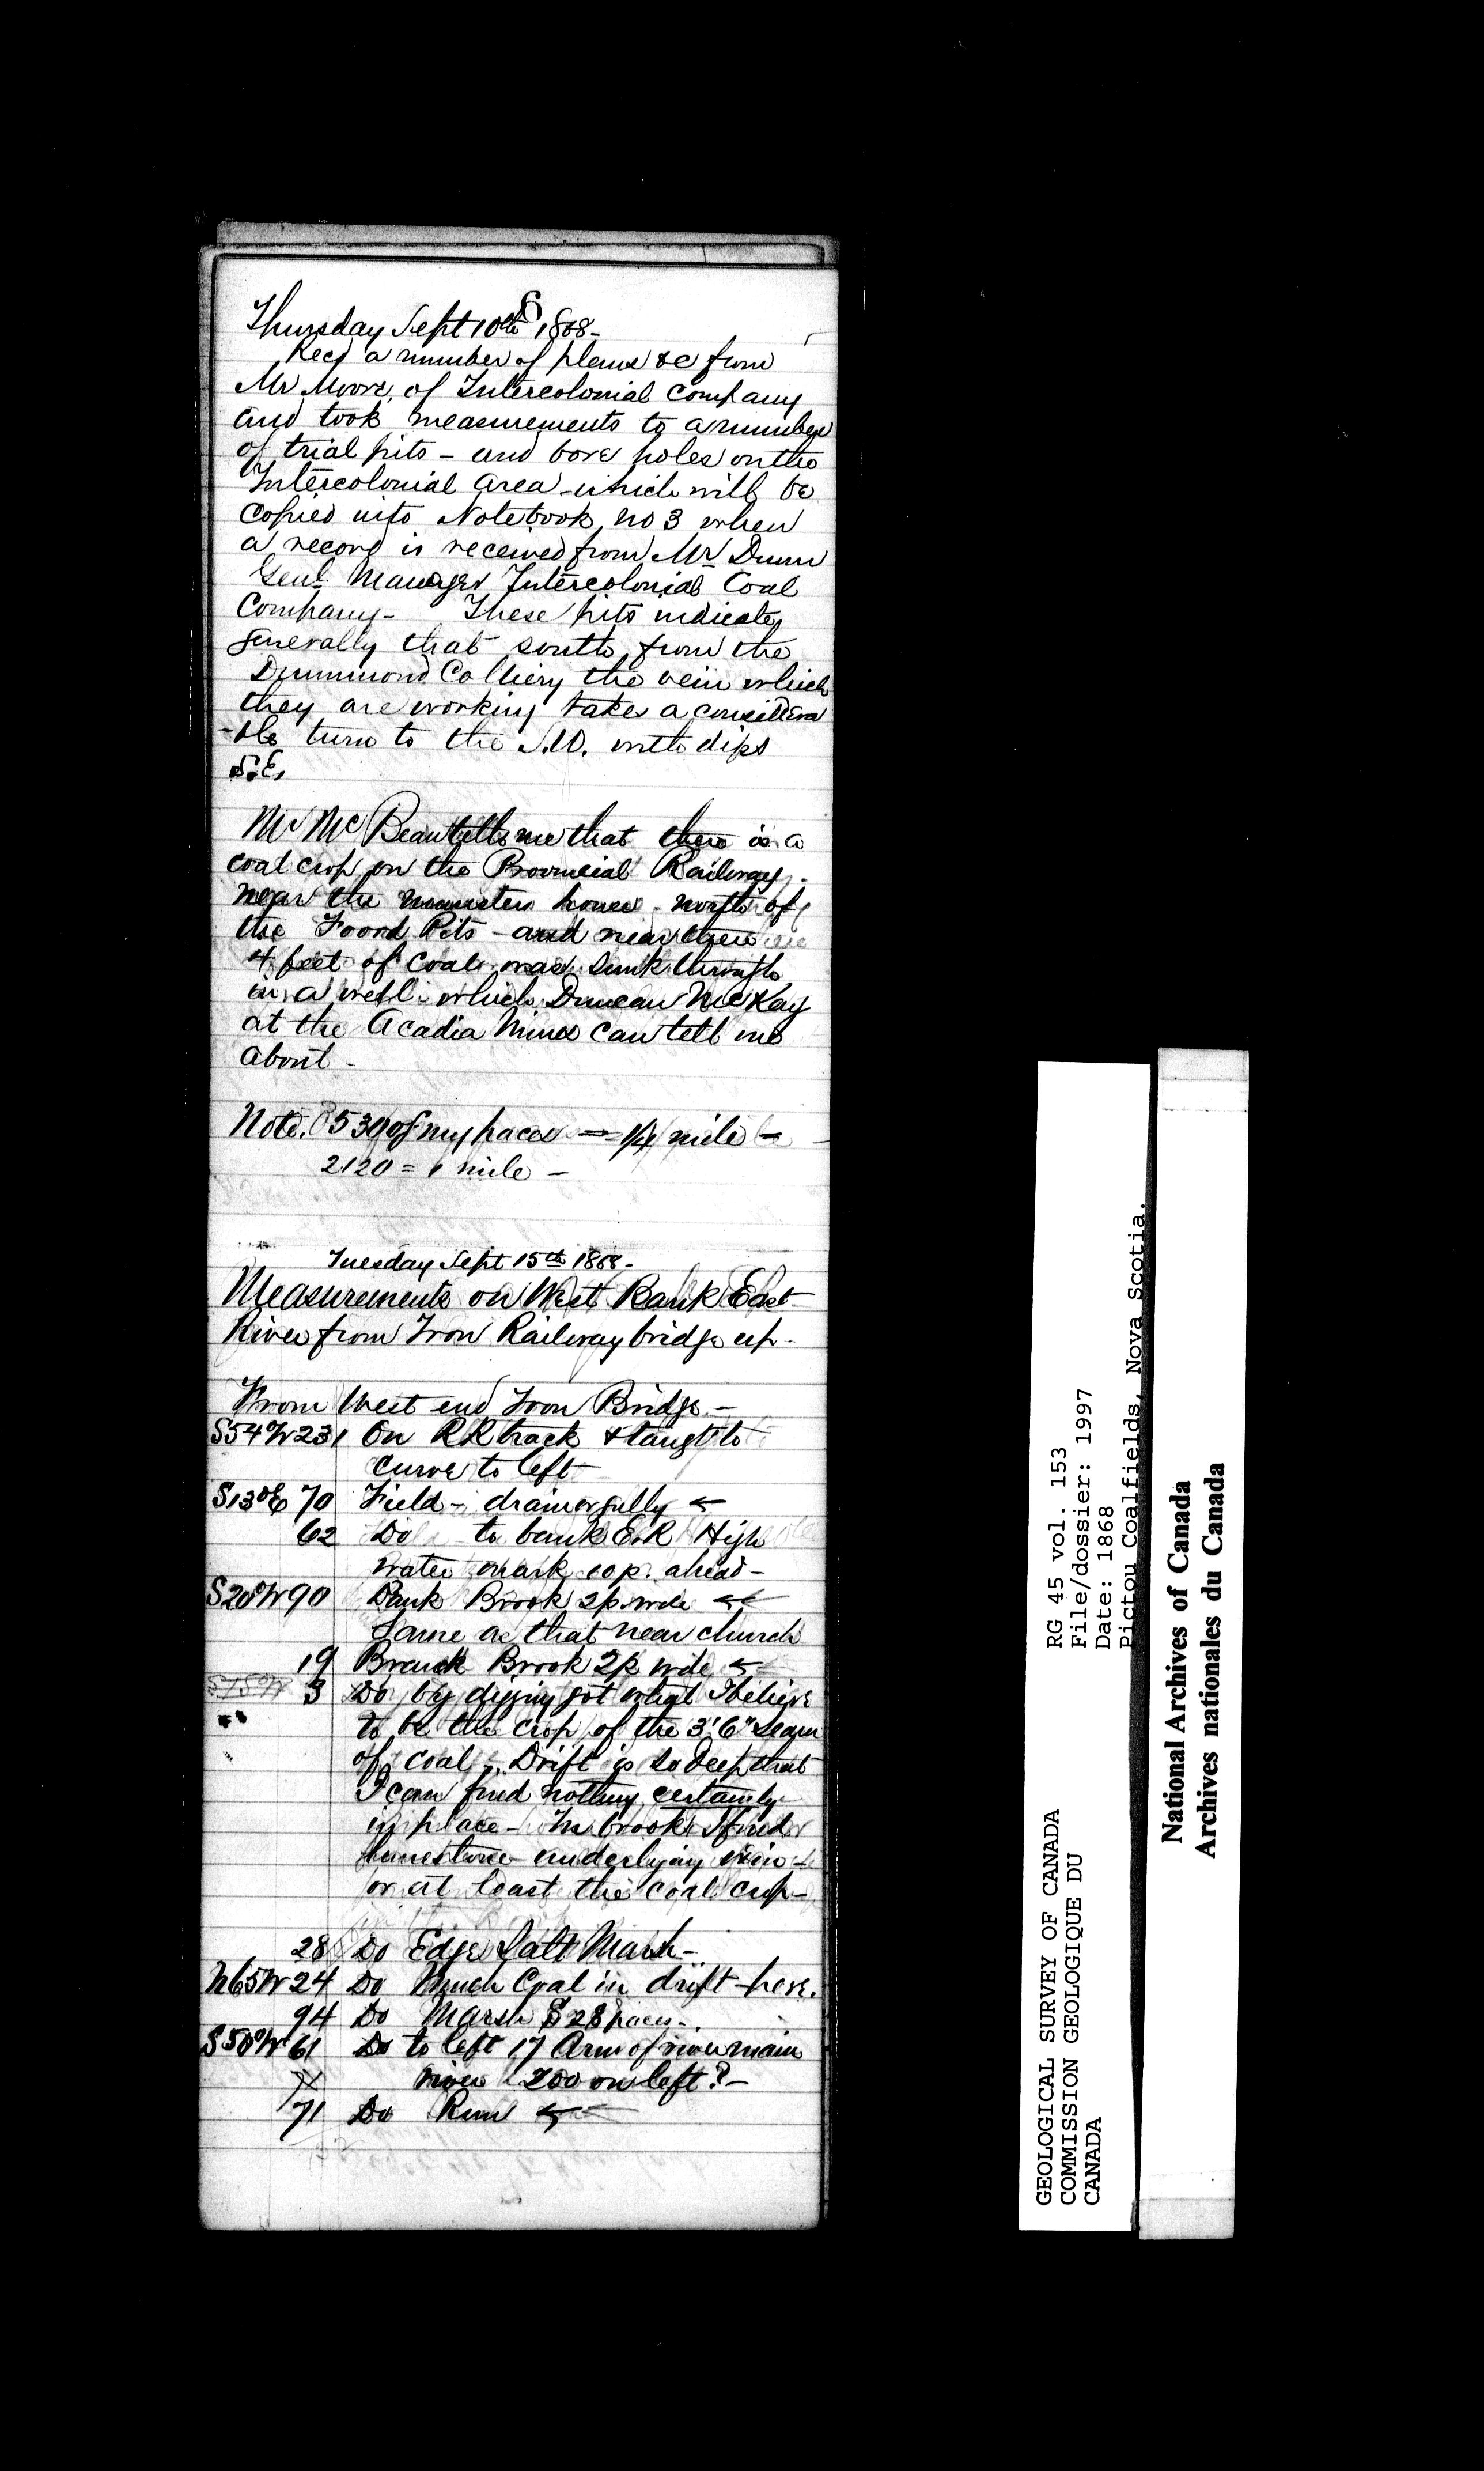 8
Thursday Sept 10th 1868 -
Recd a number of plans &c from
Mr Moore, of Intercolonial Company
and took measurements to a number
of trial pits - and bore holes on the
Intercolonial area - which will be
copied into Notebook no 3 when
a record is received from Mr Dunn
Genl Manager Intercolonial Coal
Company - These pits indicate
generally that south from the
Drummond Colliery the vein which
they are working takes a considera
-ble turn to the S.W. with dips
S.E.
Mr McBean tells me that there is a
coal crop on the Provincial Railway
near the house - north of
the Foord Pits - and near there
4 feet of coal was sunk through
in a well which Duncan McKay
at the Acadia Mines can tell me
about -
Note. 530 of my paces = 1/4 mile -
2120 = 1 mile -
Tuesday Sept 15th 1868 -
Measurements on West Bank East
River from Iron Railway bridge up -
From West end Iron Bridge -
S54°W 231 On RR track & tangt to
curve to left
S13°E 70 Field - drain or gully ←
62 Do to bank E.R High
water mark 10 p. ahead -
S20°W 90 Bank Brook 2p. wde ←
Same as that near church
19 Branch Brook 2p wde ←
S75W 3 Do by digging got what I believe
to be the crop of the 3' 6" seam
of coal. Drift is so deep that
I can find nothing certainly
in place - In brook I find
limestone - underlying -
or at least the coal crop -
28 Do Edge Salt Marsh -
N65W 24 Do Much Coal in drift here.
94 Do Marsh 28 paces -
S50°W 61 Do to left 17 Arm of river main
river 200 on left? -
71 Do Run ←
GEOLOGICAL SURVEY OF CANADA
COMMISSION GEOLOGIQUE DU
CANADA
RG 45 vol. 153
File/dossier: 1997
Date: 1868
Pictou Coalfields, Nova Scotia.
National Archives of Canada
Archives nationales du Canada